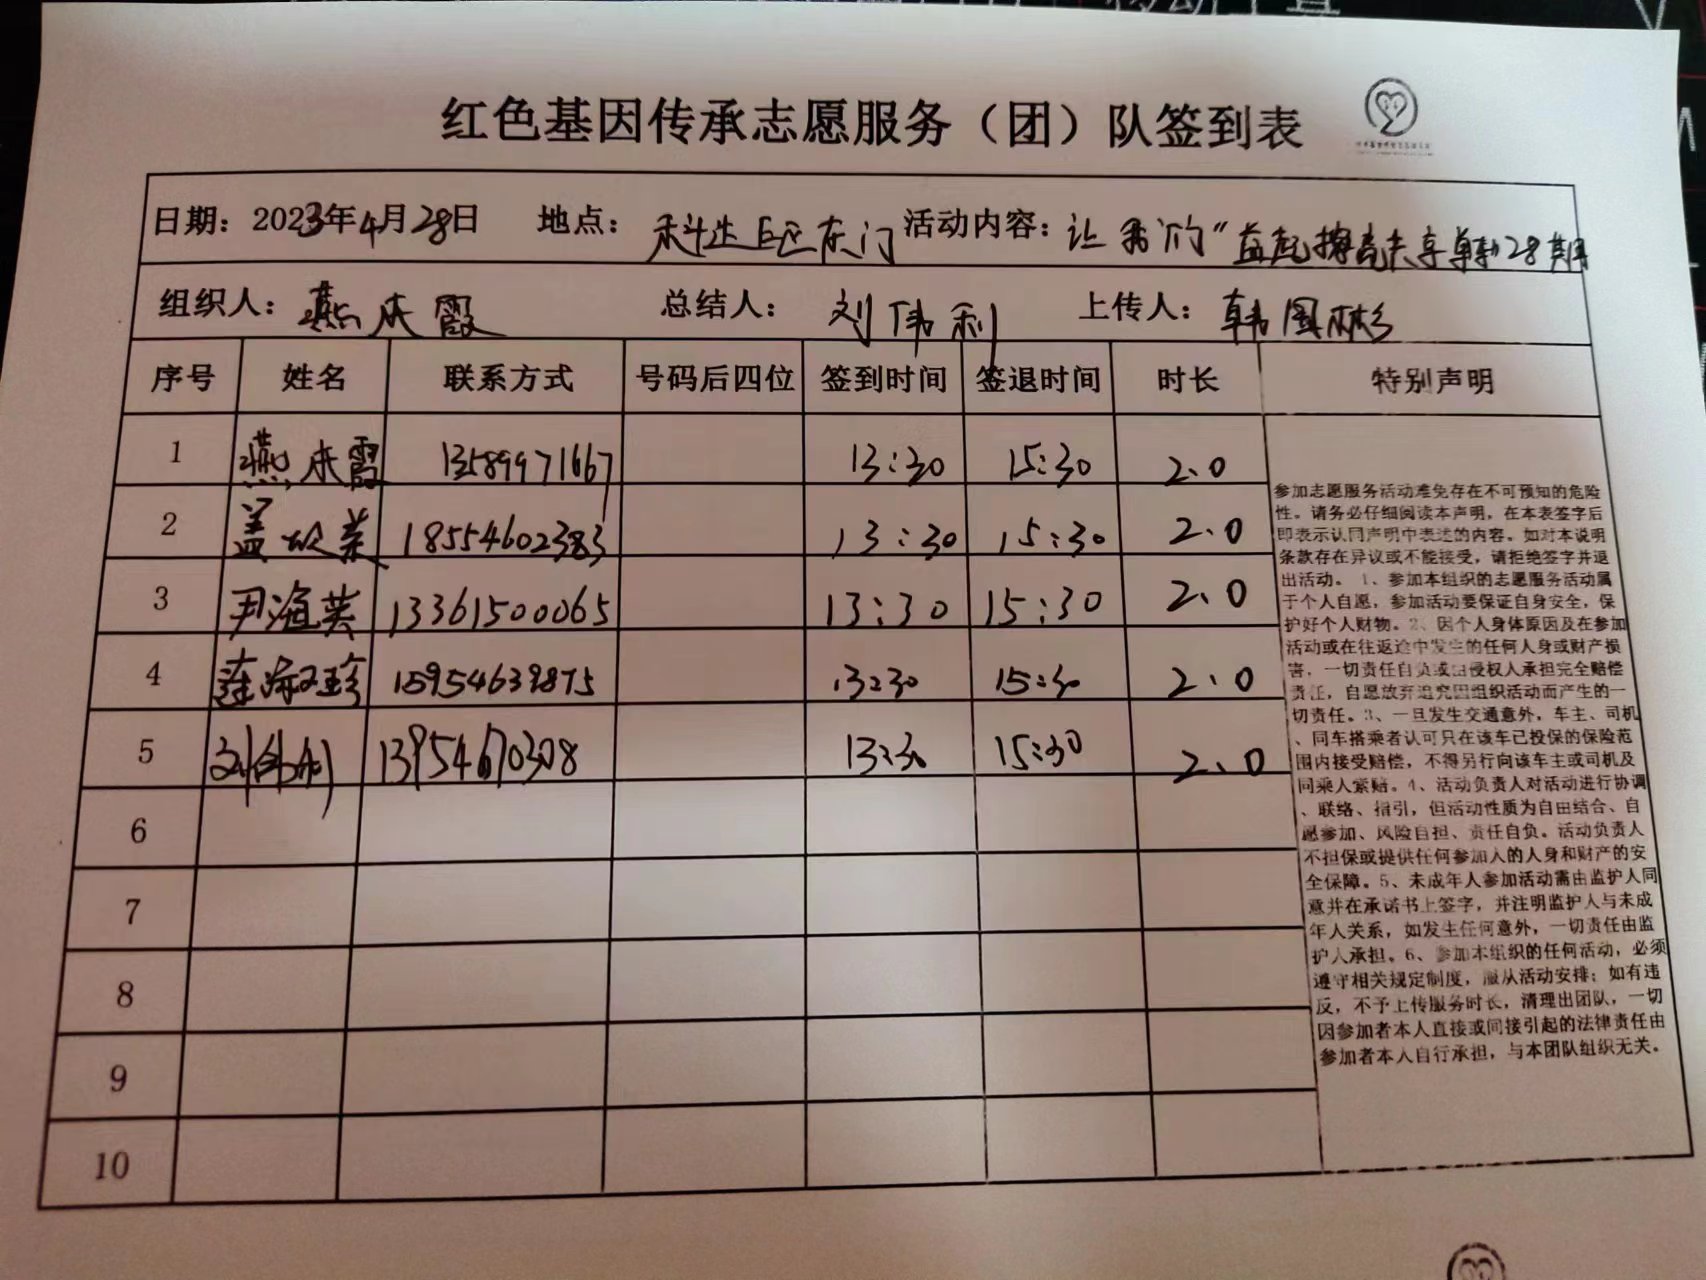 红色基因传承志愿服务（团）队签到表
日期：2023年4月28日 地点：科达 东门 活动内容：让我们的“益起 共享单车”28期
组织人：燕庆霞 总结人：刘伟利 上传人：韩国彬
序号 姓名 联系方式 号码后四位 签到时间 签退时间 时长 特别声明
1 燕庆霞 13589971667 13:30 15:30 2.0
2 盖 英 18554602383 13:30 15:30 2.0
3 尹海英 13361500065 13:30 15:30 2.0
4 15954639875 13:30 15:30 2.0
5 刘伟利 13954670308 13:30 15:30 2.0
6
7
8
9
10
参加志愿服务活动难免存在不可预知的危险
性。请务必仔细阅读本声明，在本表签字后
即表示认同声明中表述的内容。如对本说明
条款存在异议或不能接受，请拒绝签字并退
出活动。1、参加本组织的志愿服务活动属
于个人自愿，参加活动要保证自身安全，保
护好个人财物。2、因个人身体原因及在参加
活动或在往返途中发生的任何人身或财产损
害，一切责任自负或由侵权人承担完全赔偿
责任，自愿放弃追究因组织活动而产生的一
切责任。3、一旦发生交通意外，车主、司机
、同车搭乘者认可只在该车已投保的保险范
围内接受赔偿，不得另行向该车主或司机及
同乘人索赔。4、活动负责人对活动进行协调
、联络、指引，但活动性质为自由结合、自
愿参加、风险自担、责任自负。活动负责人
不担保或提供任何参加人的人身和财产的安
全保障。5、未成年人参加活动需由监护人同
意并在承诺书上签字，并注明监护人与未成
年人关系，如发生任何意外，一切责任由监
护人承担。6、参加本组织的任何活动，必须
遵守相关规定制度，服从活动安排；如有违
反，不予上传服务时长，清理出团队，一切
因参加者本人直接或间接引起的法律责任由
参加者本人自行承担，与本团队组织无关。